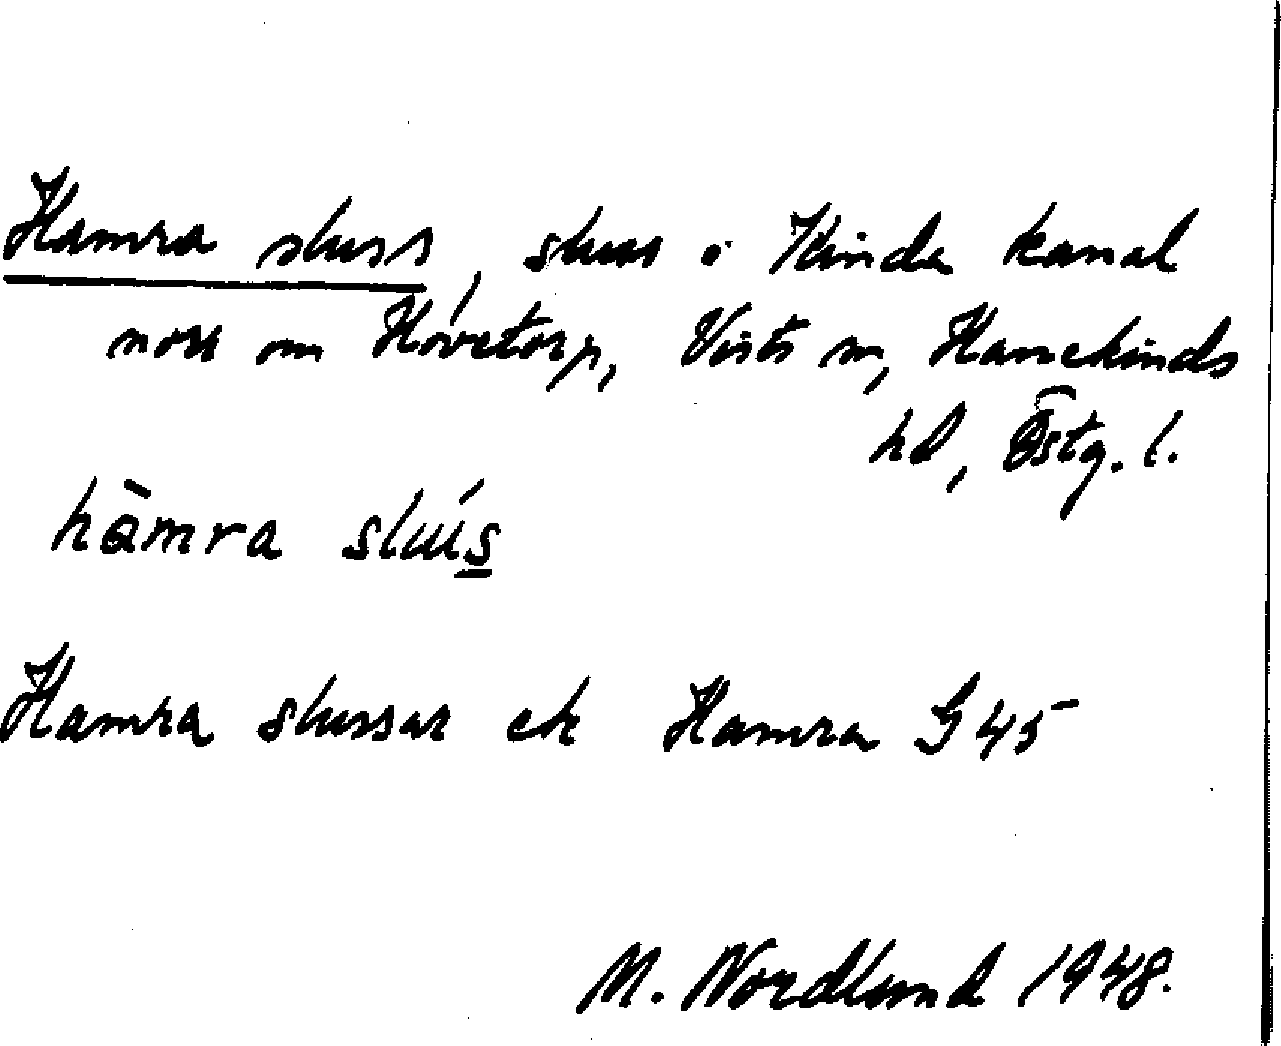 Hamra sluss, sluss i Kinda kanal
norr om Hovetorp, Vists sn, Hanekinds
hd, Östg. l.
hàmra slús
Hamra slussar ek Hamra G 45
M. Nordlund 1948.